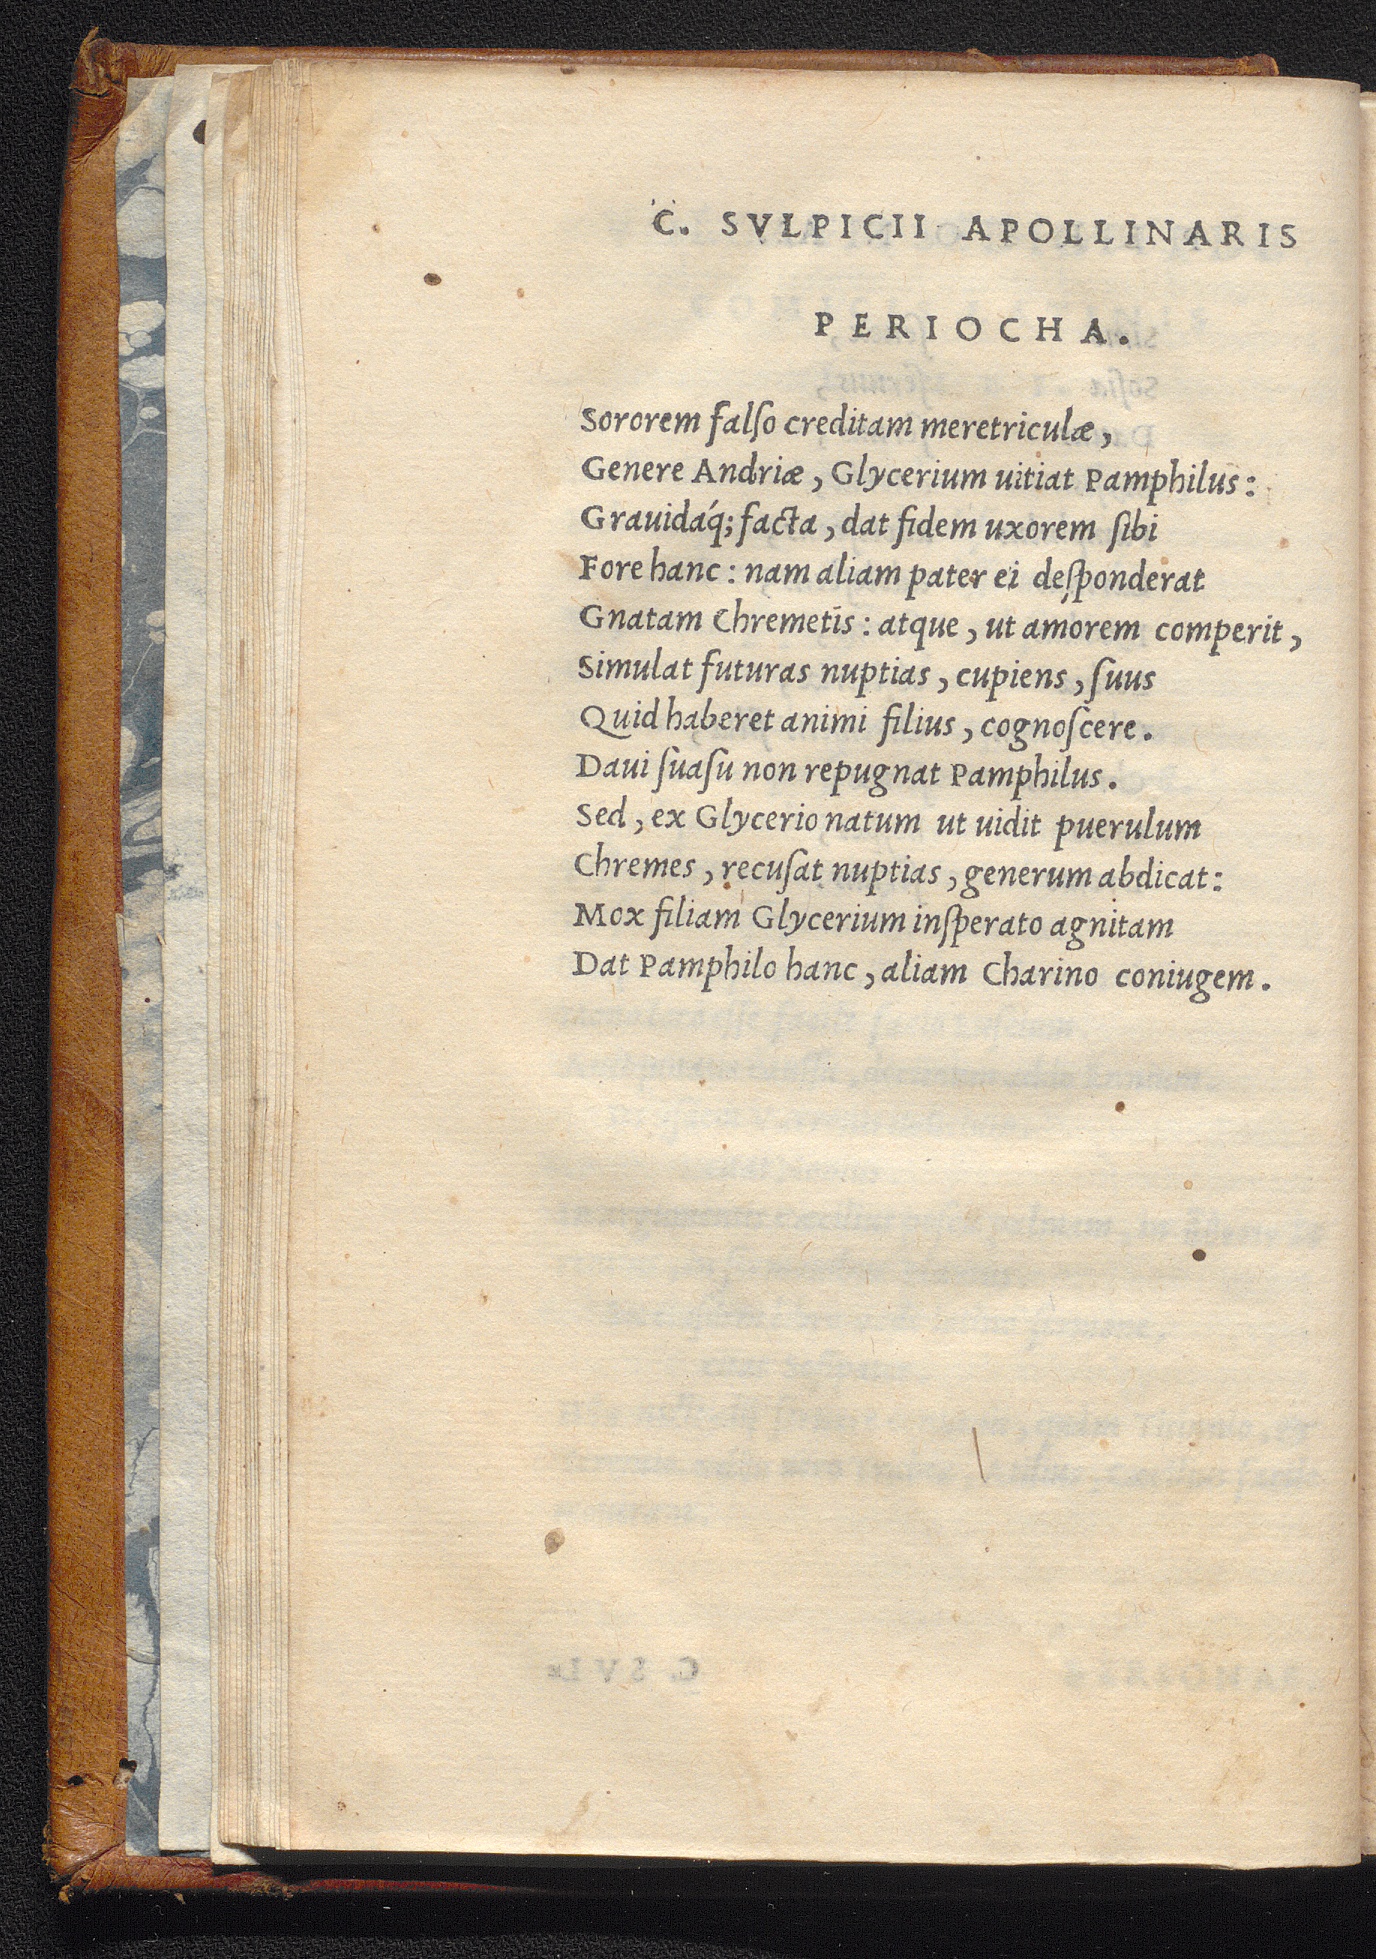 C. SVLPICII APOLLINARIS
PERIOCHA.
Sororem falſo creditam meretriculæ,
Genere Andriæ, Glycerium uitiat Pamphilus:
Grauidáq; facta, dat fidem uxorem ſibi
Fore hanc: nam aliam pater ei deſponderat
Gnatam Chremetis: atque, ut amórem comperit,
Simulat futuras nuptias, cupiens, ſuus
Quid haberet animi filius, cognoſcere.
Daui ſuaſu non repugnat Pamphilus.
Sed, ex Glycerio natum ut uidit puerulum
Chremes, recuſat nuptias, generum abdicat:
Mox filiam Glycerium inſperato agnitam
Dat Pamphilo hanc, aliam Charino coniugem.